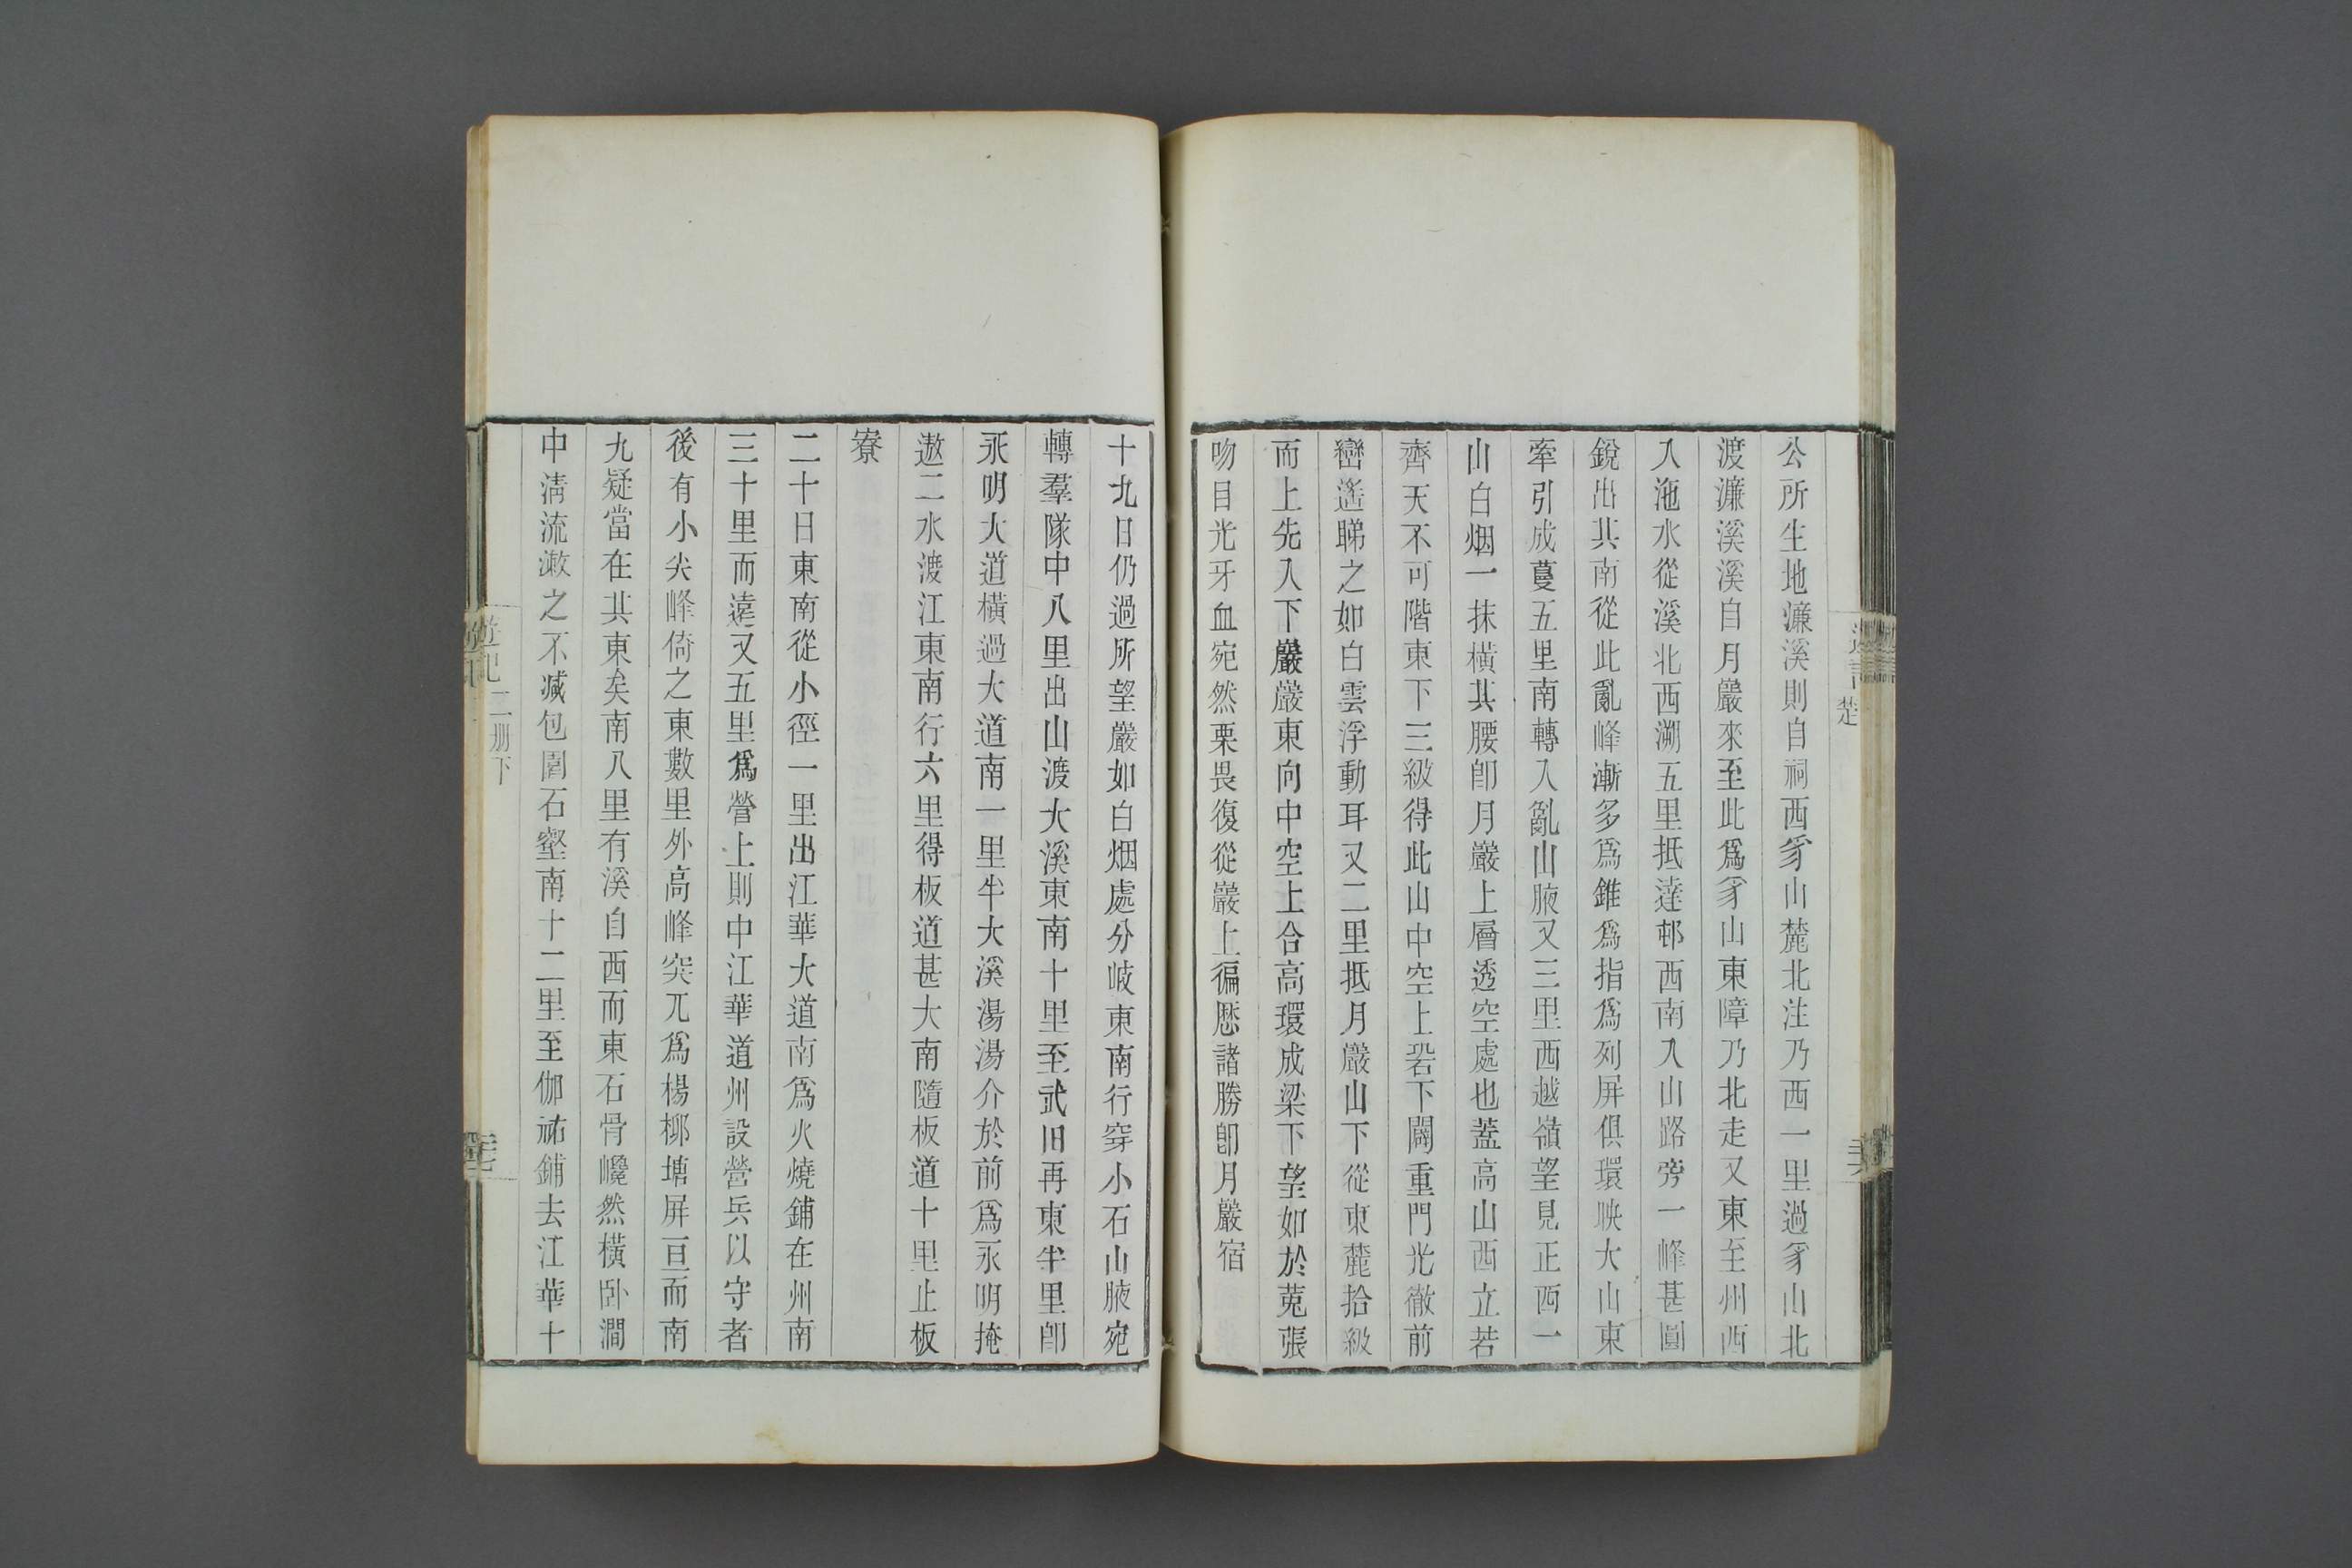 公所生地濂溪則自祠西豸山麓北注乃西一里過豸山北
渡濂溪溪自月巖來至此爲豸山東障乃北走又東至州西
入沲水從溪北西溯五里抵達邨西南入山路旁一峰甚圓
銳出其南從此亂峰漸多爲錐爲指爲列屏俱環映大山東
牽引成蔓五里南轉入亂山腋又三里西越嶺望見正西一
山白烟一抹橫其腰卽月巖上層透空處也蓋高山西立若
齊天不可階東下三級得此山中空上硿下闢重門光徹前
巒遙睇之如白雲浮動耳又二里抵月巖山下從東麓拾級
而上先入下巖巖東向中空上合高環成梁下望如於菟張
吻目光牙血宛然栗畏復從巖上徧歷諸勝卽月巖宿
十九日仍過所望巖如白烟處分岐東南行穿小石山腋宛
轉羣隊中八里出山渡大溪東南十里至武田再東半里卽
永明大道橫過大道南一里半大溪湯湯介於前爲永明掩
遨二水渡江東南行六里得板道甚大南隨板道十里止板
寮
二十日東南從小徑一里出江華大道南爲火燒鋪在州南
三十里而遠又五里爲營上則中江華道州設營兵以守者
後有小尖峰倚之東數里外高峰突兀爲楊柳塘屏亘而南
九疑當在其東矣南八里有溪自西而東石骨巉然橫臥澗
中清流潄之不减包園石壑南十二里至伽祐鋪去江華十
遊記 二册下
楚